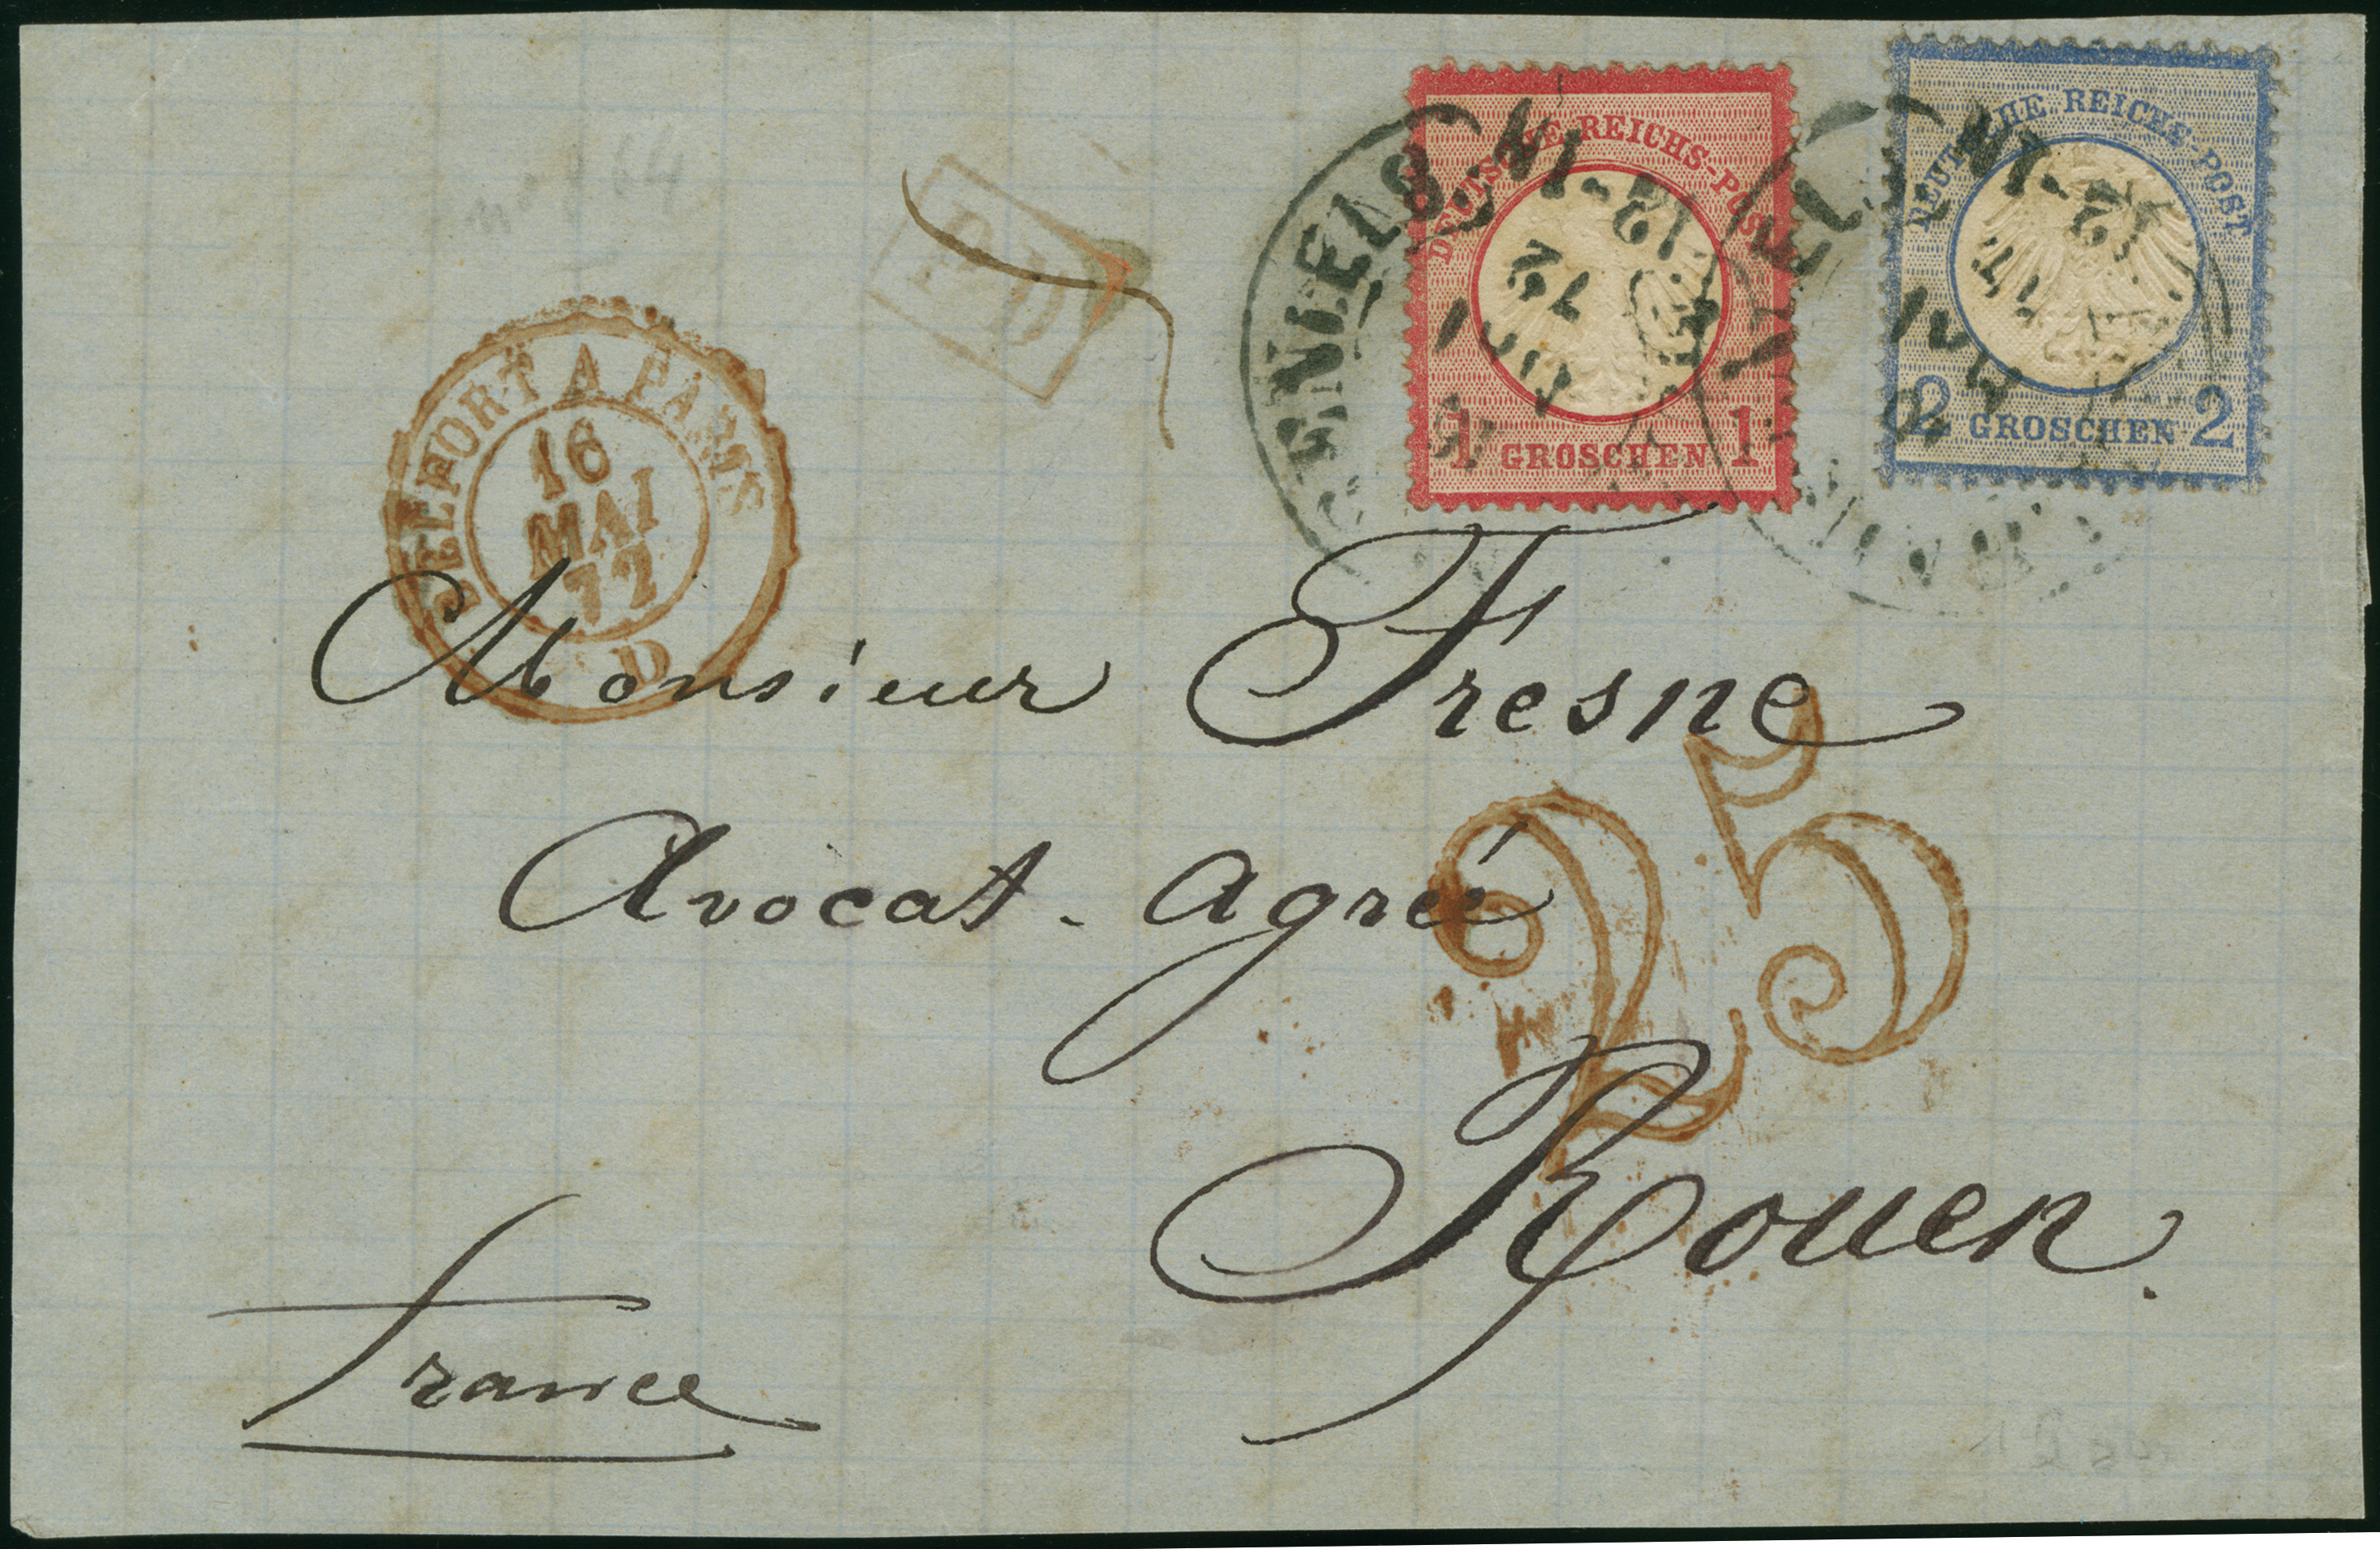 DEUTSCHE REICHS-POST
1 GROSCHEN 1
DEUTSCHE REICHS-POST
2 GROSCHEN 2
PD
BELFORT A PARIS
16
MAI
72
D
Monsieur Fresne
Avocat-agréé
25
Rouen.
France